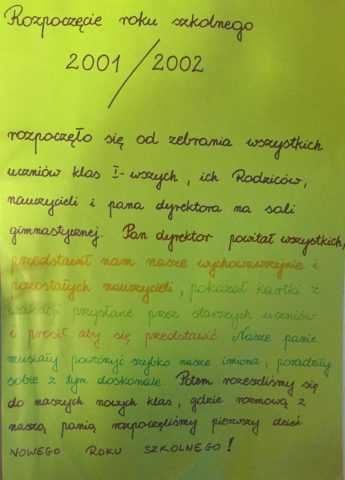 Rozpoczęcie roku szkolnego
2001/2002
rozpoczęło się od zebrania wszystkich
uczniów klas I-wszych, ich Rodziców,
nauczycieli i pana dyrektora na sali
gimnastycznej. Pan dyrektor powitał wszystkich,
przedstawił nam nasze wychowawczynie i
pozostałych nauczycieli, pokazał kartki z
wakacji przysłane przez starszych uczniów
i prócił aby się przedstawić. Nasze panie
musiały powtórzyć szybko nasze imiona, poradziły
sobie z tym doskonale. Potem rozeszliśmy się
do naszych nowych klas, gdzie rozmową z
naszą panią rozpoczęliśmy pierwszy dzień
NOWEGO ROKU SZKOLNEGO!